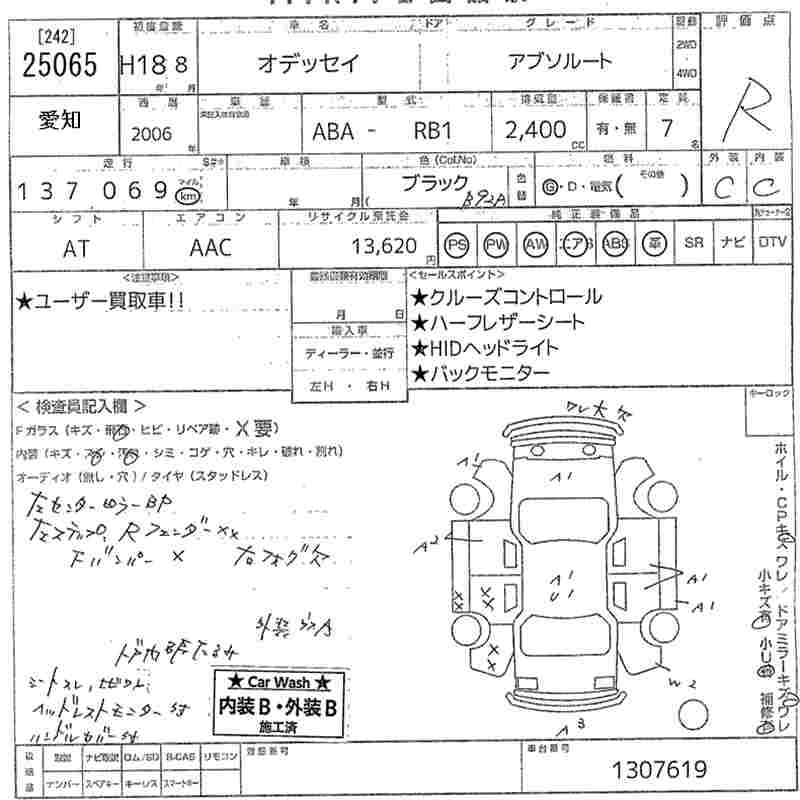 [242]
25065
初度登録
H18 8
年 月
車名
ドア
グレード
オデッセイ
アブソルート
駆動
2WD
4WD
評価点
R
愛知
西暦
2006
年
車歴
型式
ABA - RB1
排気量
2,400
CC
保証書
有・無
定員
7
名
走行
137,069
マイル
km
S#*
車検
年 月
色(Col.No)
ブラック
B92A
色替
燃料
G・D・電気( その他 )
外装
C
内装
C
シフト
AT
エアコン
AAC
リサイクル預託金
13,620
円
純正装備品
PS PW AW エアB ABS 革 SR ナビ DTV
<注意事項>
★ユーザー買取車!!
月 日
輸入車
ディーラー・並行
左H ・ 右H
<セールスポイント>
★クルーズコントロール
★ハーフレザーシート
★HIDヘッドライト
★バックモニター
キーロック
<検査員記入欄>
Fガラス(キズ・飛石・ヒビ・リペア跡・X要)
内装(キズ・スレ・汚れ・シミ・コゲ・穴・キレ・破れ・割れ)
オーディオ(無し・穴)/タイヤ(スタッドレス)
左センターピラーBP
左ステップ, Rフェンダー××
Fバンパー × 右フォグ欠
ヘッドレストモニター付
ハンドルカバー付
A1
A1
A2
A1
U1
A1
A1
W2
A3
ホイル・CPキズワレ/ドアミラーキズワレ
小キズ有 小U有 補修有
★ Car Wash ★
内装B・外装B
施工済
欠品
取説 ナビ取説 ロム/SD B-CAS リモコン
ナンバー スペアキー キーレス スマートキー
登録番号
車台番号
1307619